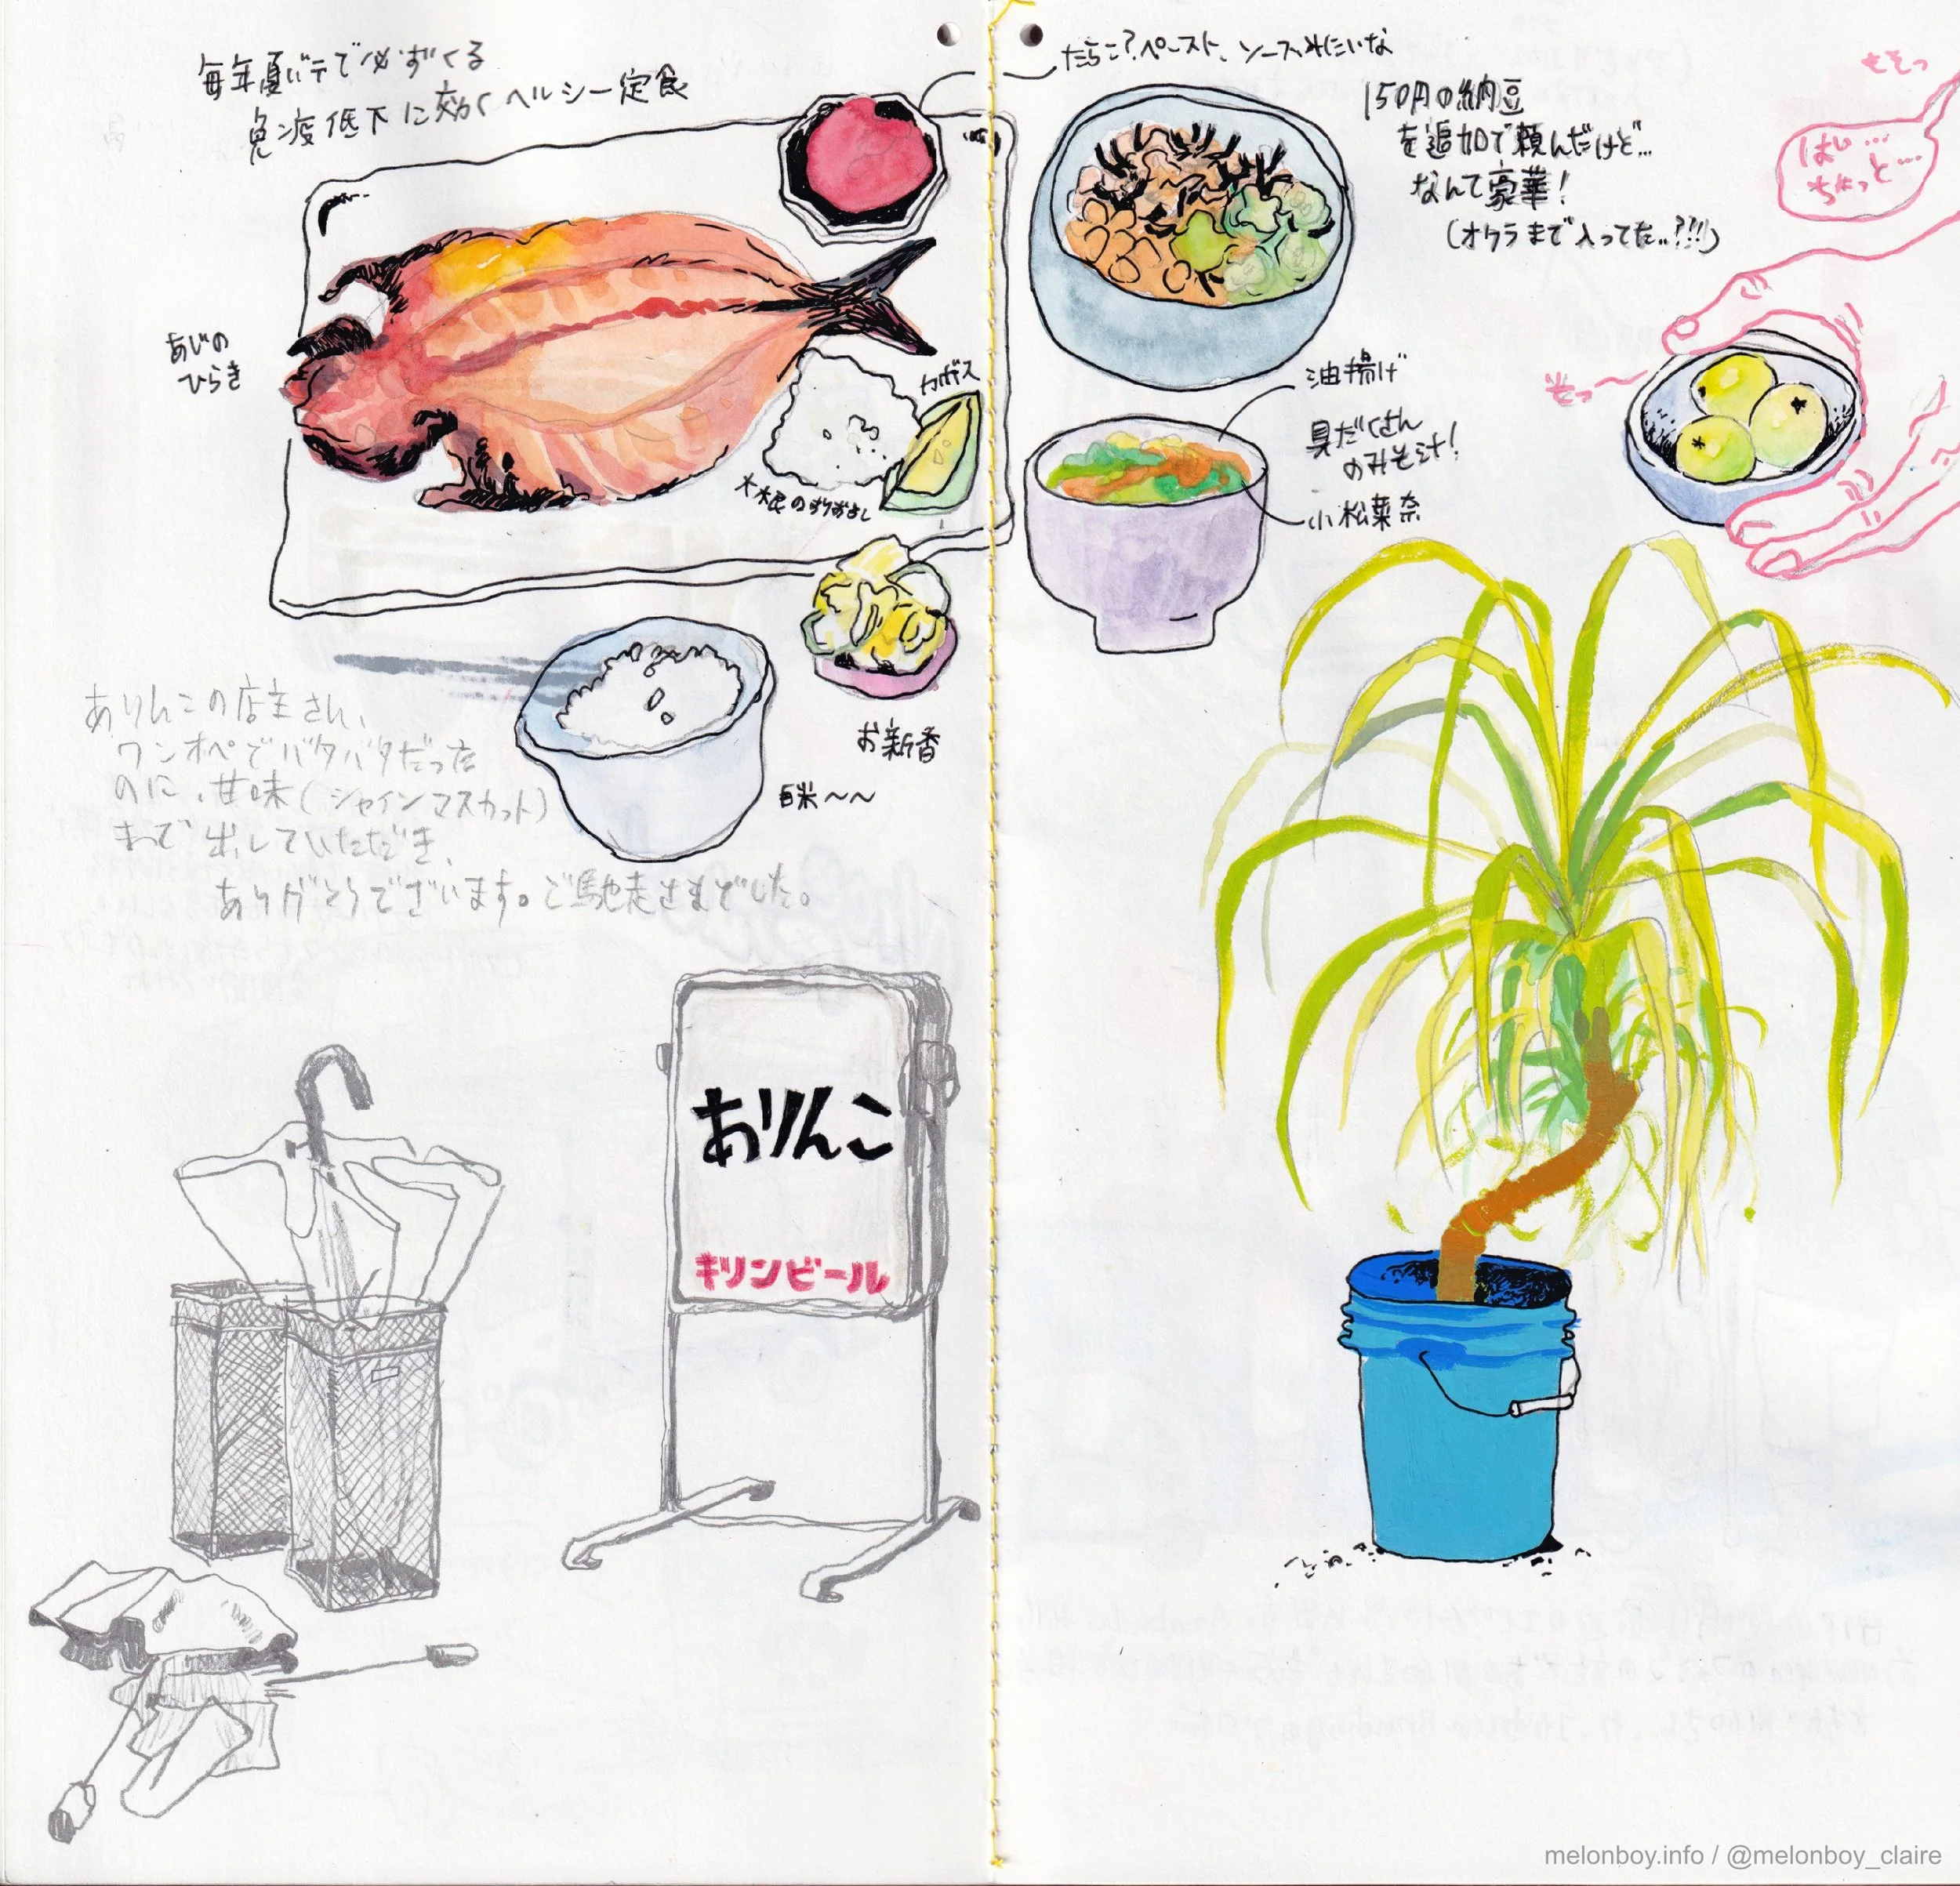 毎年夏バテで必ずくる
免疫低下に効くヘルシー定食
たらこ?ペースト、ソースみたいな
150円の納豆
を追加で頼んだけど…
なんて豪華!
(オクラまで入ってた..?!!)
そそっ
はい…
ちょっと…
そっ
あじの
ひらき
カボス
大根のすりおろし
油揚げ
具だくさん
のみそ汁!
小松菜
お新香
白米〜〜
ありんこの店主さん、
ワンオペでバタバタだった
のに、甘味(シャインマスカット)
まで出していただき、
ありがとうございます。ご馳走さまでした。
ありんこ
キリンビール
melonboy.info / @melonboy_claire